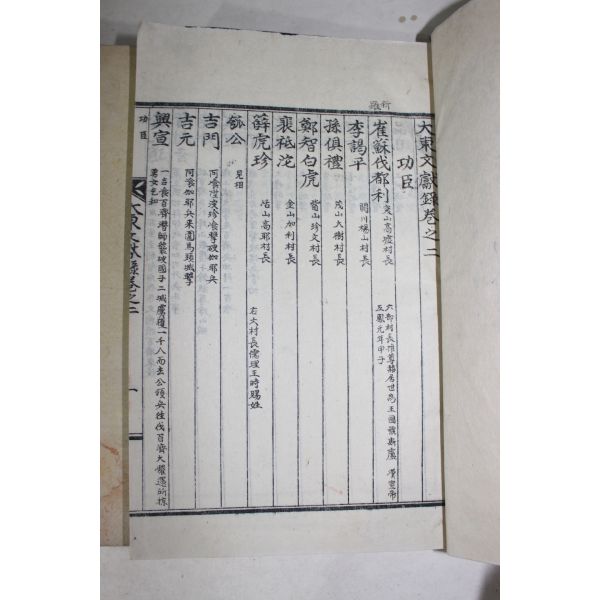 大東文獻錄卷之二
功臣
新羅
崔蘇伐都利 突山高墟村長 六部村長推尊赫居世爲王國號斯盧 漢宣帝五鳳元年甲子
李謁平 閼川楊山村長
孫俱禮 茂山大樹村長
鄭智白虎 觜山珍支村長
裵祗沱 金山加利村長
薛虎珍 明山高耶村長 右六村長儒理王時賜姓
瓠公 見相
吉門 阿飡 黃山津口擊破伽耶兵
吉元 阿飡伽耶兵來圍馬頭城擊
興宣 一吉飡百濟潛師襲破國西二城虜獲一千八百而去公領兵往伐百濟大懼還所掠男女乞和
功臣
大東文獻錄卷之二
一